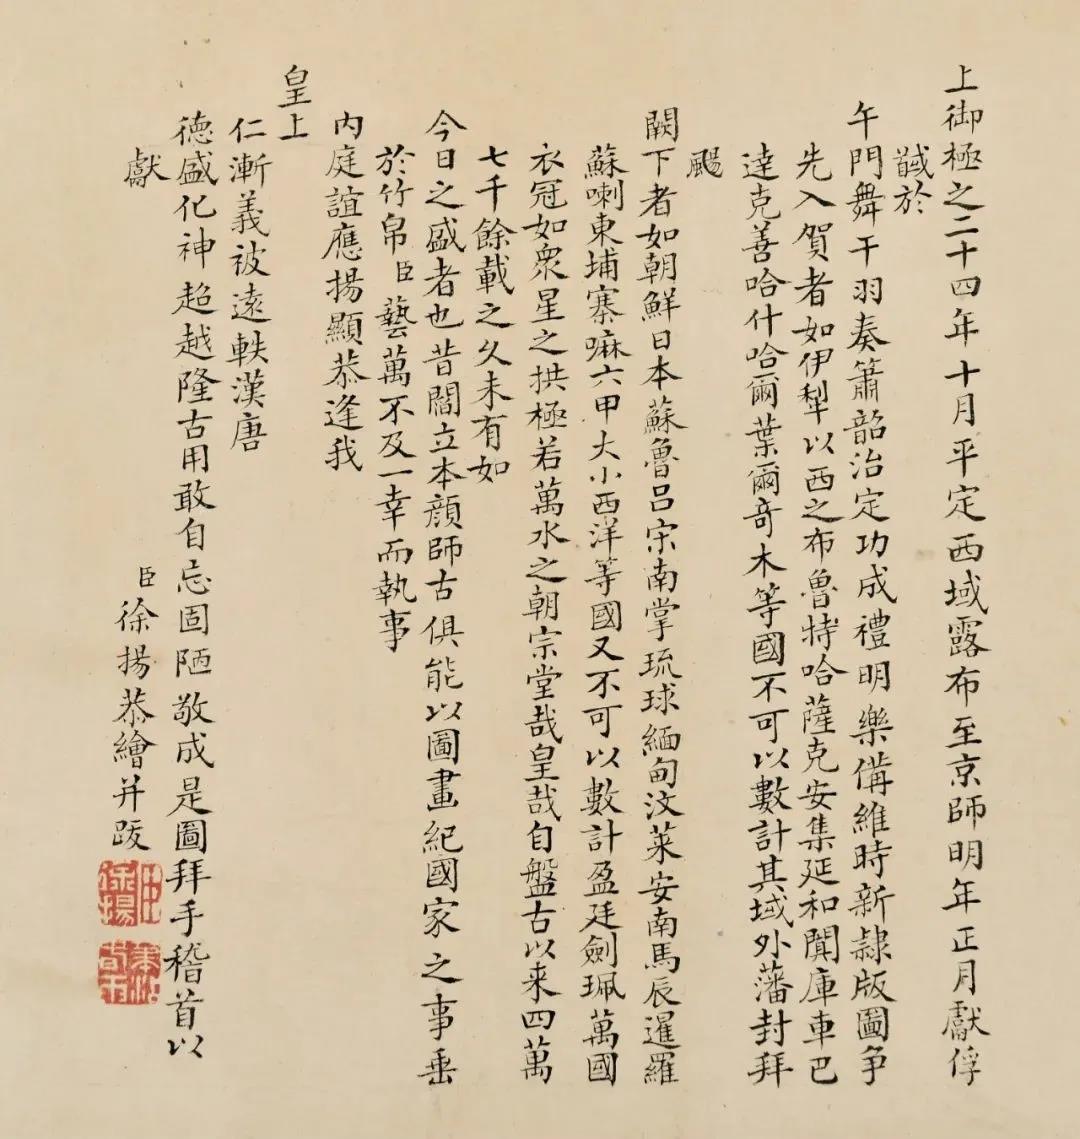 上御極之二十四年十月平定西域露布至京師明年正月獻俘
馘於
午門舞干羽奏簫韶治定功成禮明樂備維時新隷版圖争
先入賀者如伊犁以西之布魯特哈薩克安集延和闐庫車巴
達克善哈什哈爾葉爾奇木等國不可以數計其域外藩封拜
颺
闕下者如朝鮮日本蘇魯呂宋南掌琉球緬甸汶萊安南馬辰暹羅
蘇喇東埔寨嘛六甲大小西洋等國又不可以數計盈廷劍珮萬國
衣冠如衆星之拱極若萬水之朝宗堂哉皇哉自盤古以来四萬
七千餘載之久未有如
今日之盛者也昔閻立本顔師古俱能以圖畫紀國家之事垂
於竹帛臣藝萬不及一幸而執事
内庭誼應揚顯恭逢我
皇上
仁漸義被遠軼漢唐
德盛化神超越隆古用敢自忘固陋敬成是圖拜手稽首以
獻
臣徐揚恭繪并跋
臣徐揚